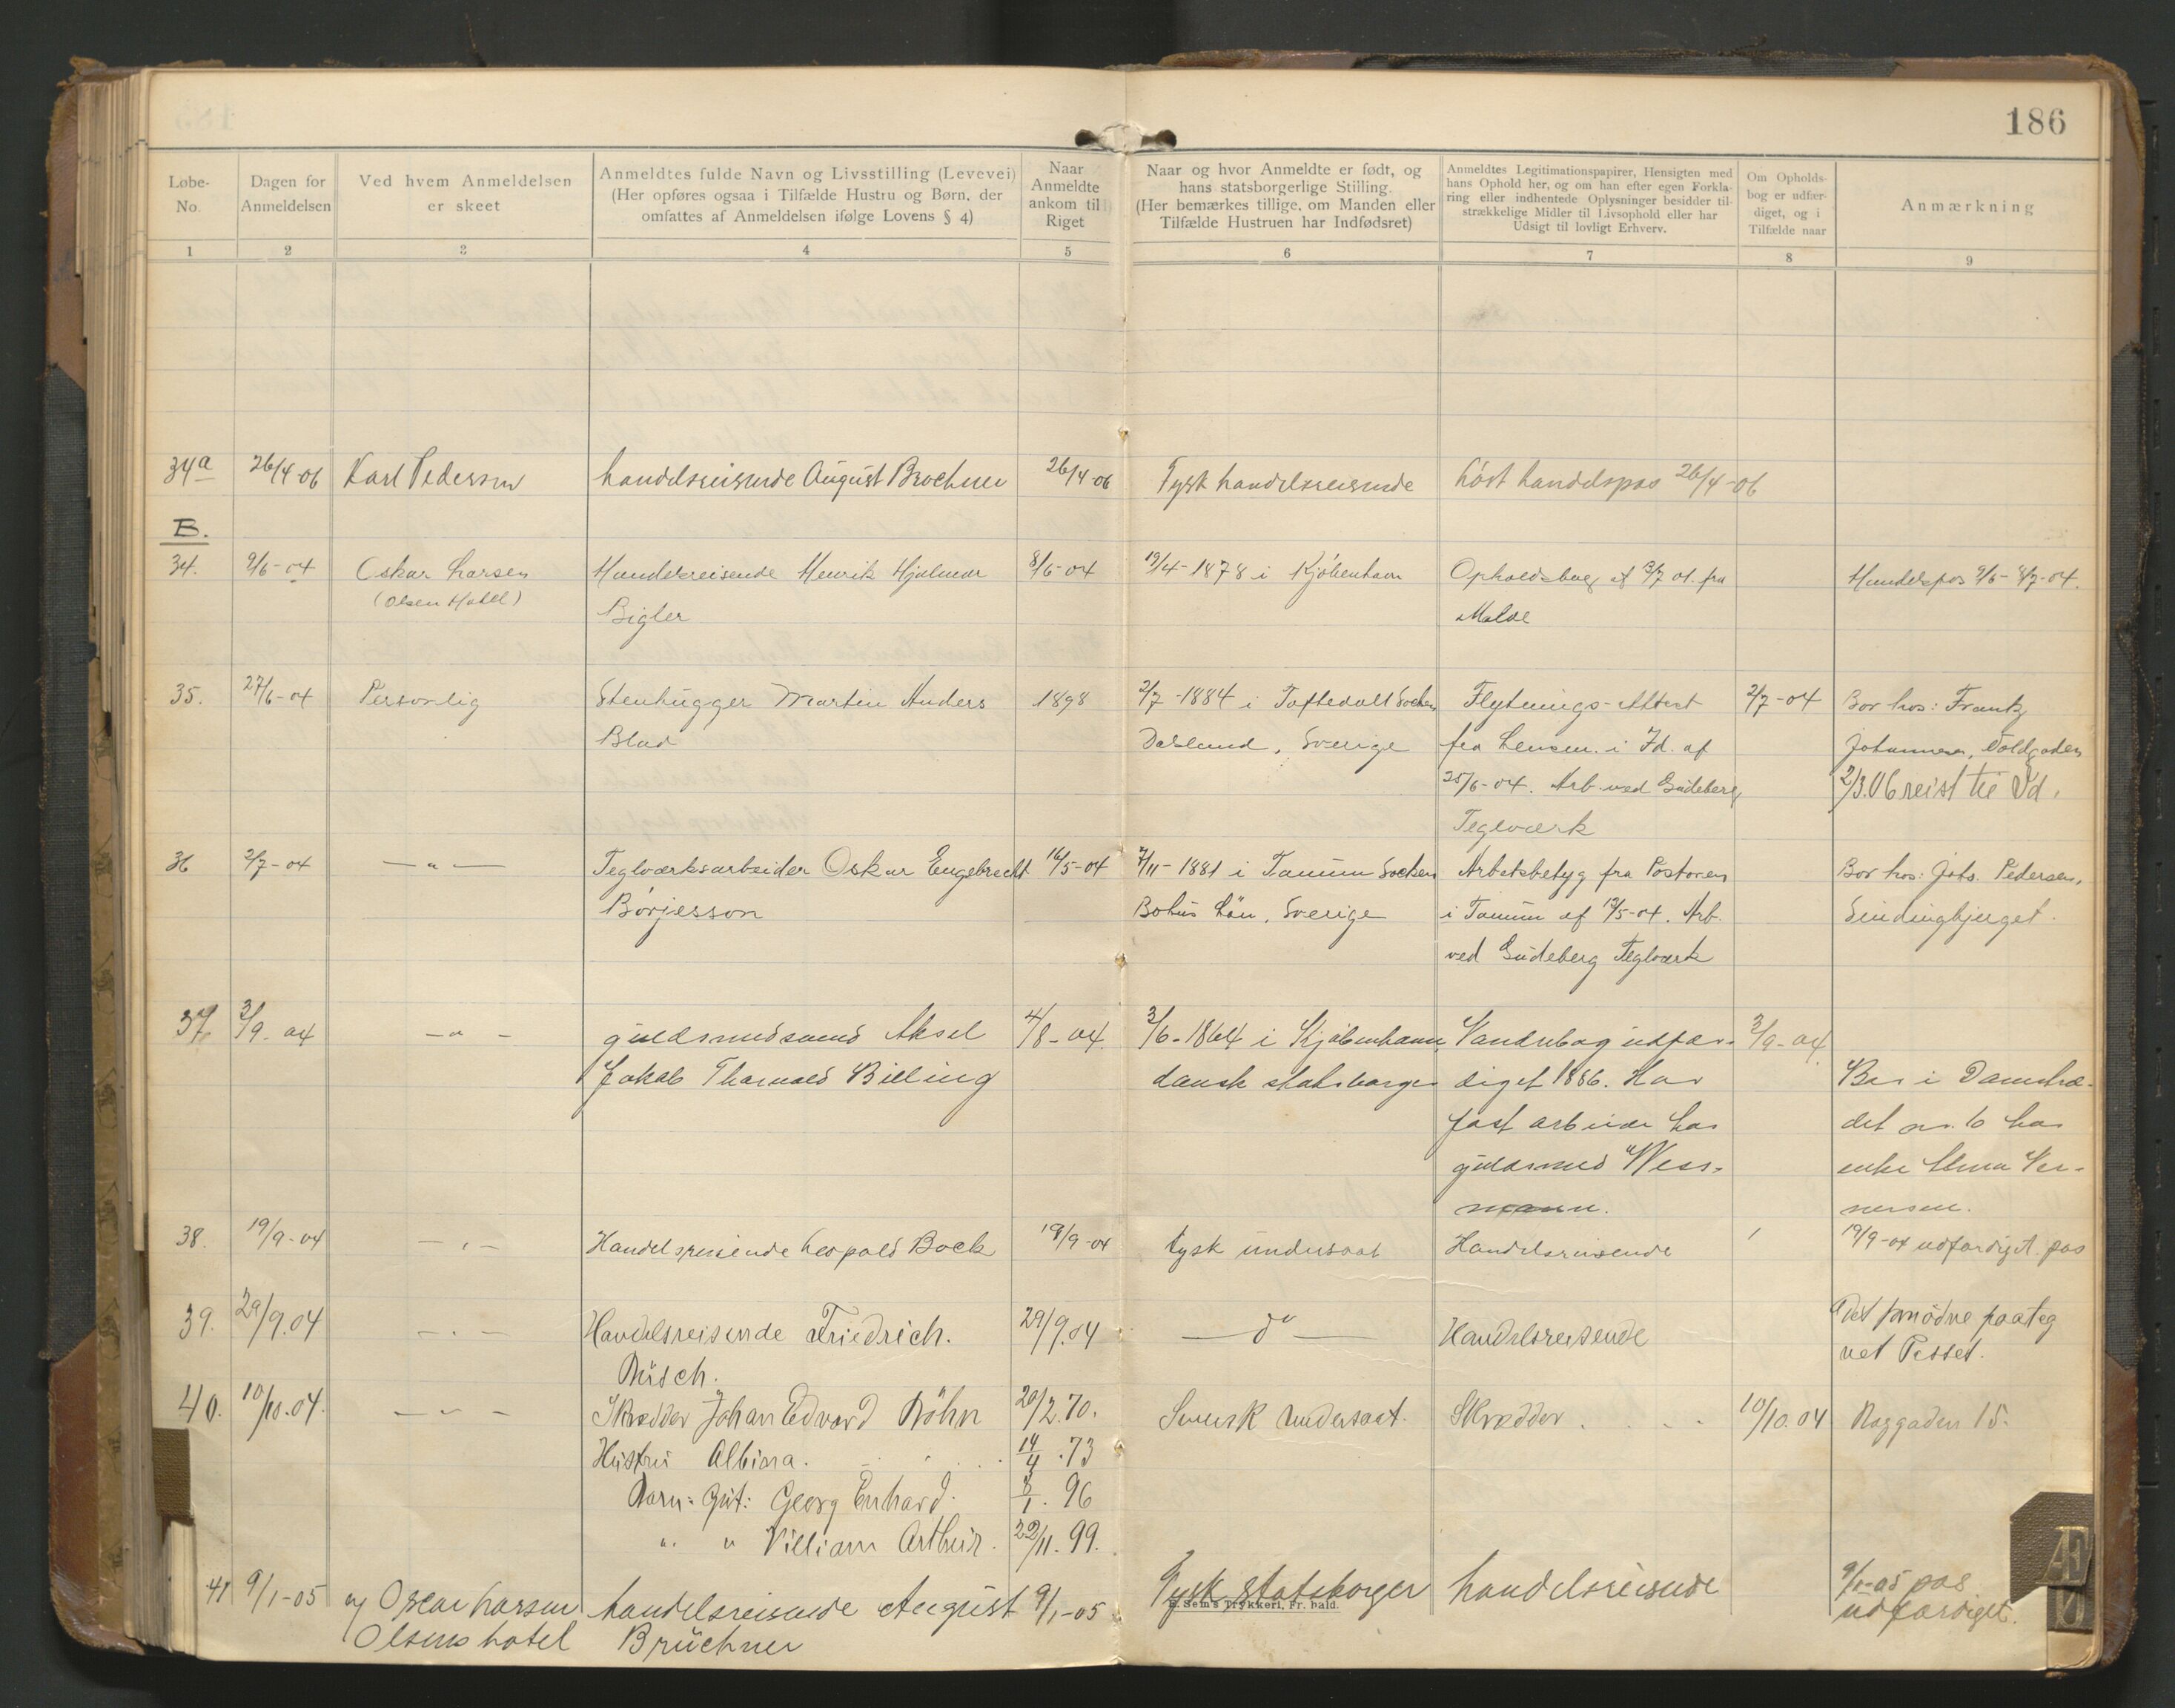 186
Løbe-
No.
Dagen for
Anmeldelsen
Ved hvem Anmeldelsen
er skeet
Anmeldtes fulde Navn og Livsstilling (Levevei)
(Her opføres ogsaa i Tilfælde Hustru og Børn, der
omfattes af Anmeldelsen ifølge Lovens § 4)
Naar
Anmeldte
ankom til
Riget
Naar og hvor Anmeldte er født, og
hans statsborgerlige Stilling.
(Her bemærkes tillige, om Manden eller
Tilfælde Hustruen har Indfødsret)
Anmeldtes Legitimationspapirer, Hensigten med
hans Ophold her, og om han efter egen Forkla-
ring eller indhentede Oplysninger besidder til-
strækkelige Midler til Livsophold eller har
Udsigt til lovligt Erhverv.
Om Opholds-
bog er udfær-
diget, og i
Tilfælde naar
Anmærkning
1 2 3 4 5 6 7 8 9
34a 26/4-06 Karl Pedersen handelsreisende August Brochner 26/4-06 Tysk handelsreisende Løst handelspas 26/4-06
B.
34. 9/6-04 Oskar Larsen Handelsreisende Henrik Hjalmar 8/6-04 19/4-1878 i Kjøbenhavn Opholdsbog af 3/7 01. fra Handelspas 9/6-8/7-04.
(Olsen Hotel) Bigler Molde
35. 27/6-04 Personlig Stenhugger Martin Anders 1898 2/7-1884 i Toftedall Socken Flytnings-Attest 2/7-04 Bor hos: Frantz
Blad Dalsland, Sverige fra Lensm. i Id. af Johannesen, Voldgaden
25/6-04. Arb. ved Gudeberg 2/3.06 reist til Id.
Teglværk
36 2/7-04 —„— Teglværksarbeider Oskar Engebrecht 16/5-04 7/11-1881 i Tanum Socken Arbetsbetyg fra Pastoren Bor hos: Johs. Pedersen,
Börjesson Bohus Län, Sverige i Tanum af 13/5-04. Arb.
ved Gudeberg Teglværk
37. 3/9-04 —„— guldsmedsvend Aksel 4/8-04. 3/6-1864 i Kjøbenhavn, Vandrebog udfær- 3/9-04
Jakob Thorvald Billing dansk statsborger diget 1886. Har Bor i Damstræ-
fast arbeide hos det nr. 6 hos
guldsmed Wess- enke
mann.
38. 19/9-04 —„— Handelsreisende Leopold Bock 19/9-04 tysk undersaat Handelsreisende 19/9-04 udfærdiget pas
39. 29/9.04 —„— Handelsreisende Friedrich. 29/9.04 —do— Handelsreisende Det fornødne paateg
net Passet.
40. 10/10.04. —„— Skrædder Johan Edvard Böhn 20/2.70. Svensk Undersaat. Skrædder 10/10.04 15.
Hustru Albina. 73
Barn: Gut: Georg Enhard. 3/1. 96
„ „ Villiam Arthur. 22/11.99.
41 9/1-05 Oscar Larsen handelsreisende August 9/1-05 Tysk statsborger handelsreisende 9/1-05 pas
Olsens hotel Brüchner udfærdiget.
E. Sem's Trykkeri, Fr. hald.